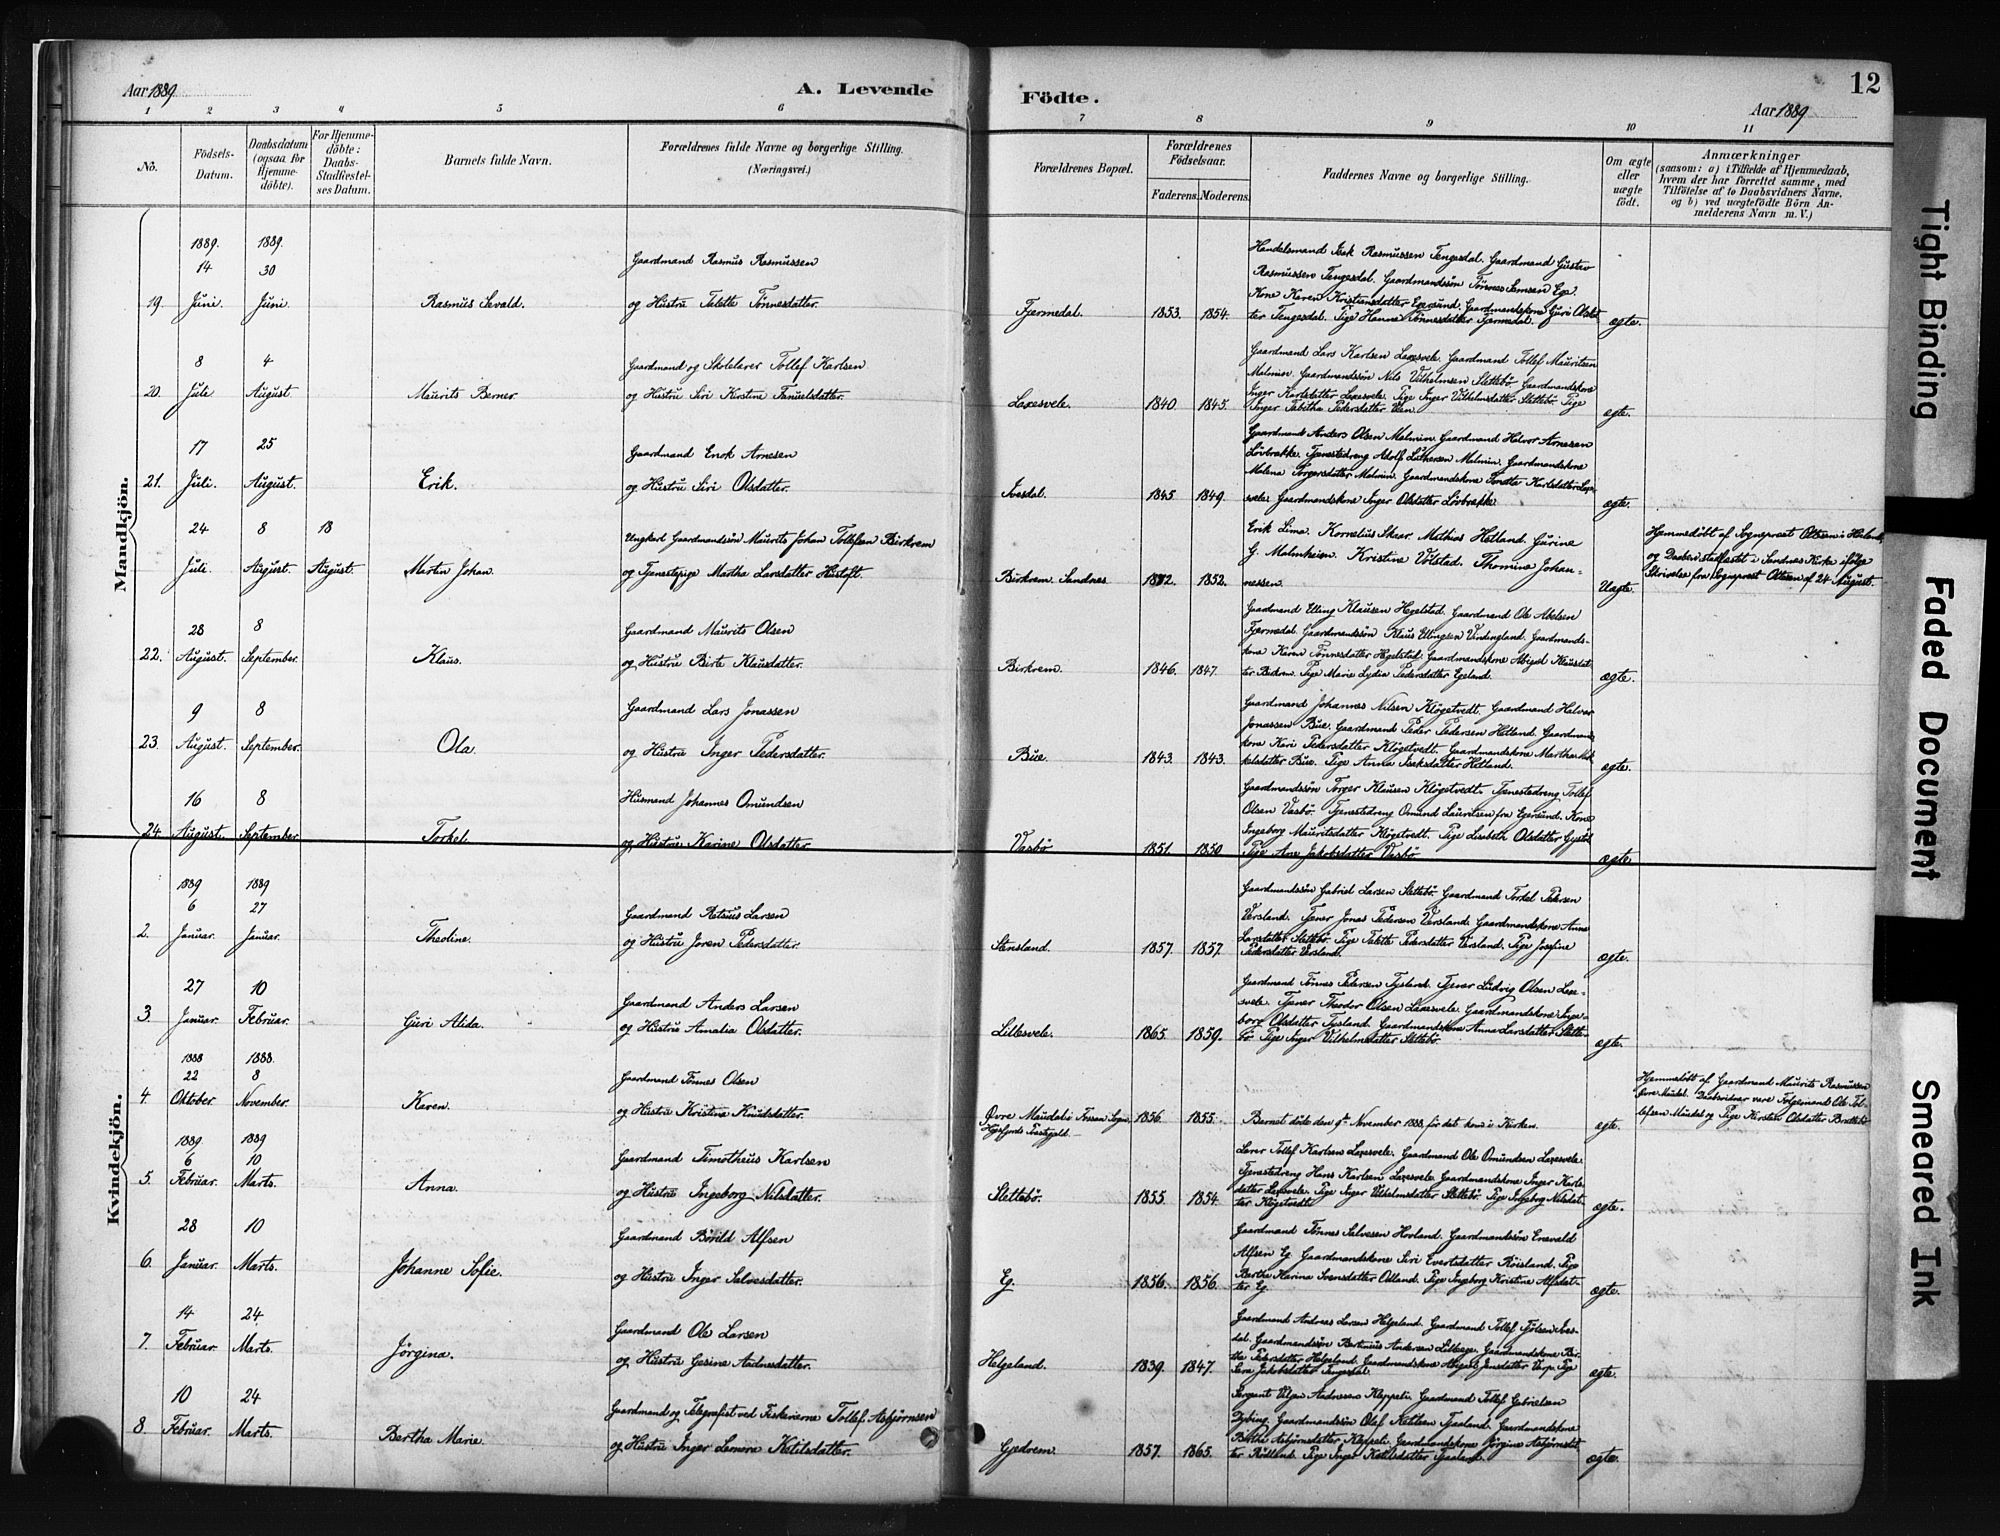 Aar 1889
A. Levende
Födte.
12
Aar 1889
1 2 3 4 5 6 7 8 9 10 11
No.
Födsels-Datum.
Daabsdatum (ogsaa for Hjemme-döbte).
For Hjemme-döbte: Daabs-Stadfæstel-ses Datum.
Barnets fulde Navn.
Forældrenes fulde Navne og borgerlige Stilling. (Næringsvei.)
Forældrenes Bopæl.
Forældrenes Födselsaar.
Faderens. Moderens.
Faddernes Navne og borgerlige Stilling.
Om ægte eller uægte födt.
Anmærkninger
(saasom: a) i Tilfælde af Hjemmedaab,
hvem der har forrettet samme, med
Tilföielse af to Daabsvidners Navne.
og b) ved uægtefödte Börn An-
melderens Navn m. V.)
Mandkjön.
1889. 1889.
14 30 Gaardmand Rasmus Rasmussen
19. Juni. Juni. Rasmus Sevald. og Hustru Talette Tønnesdatter. Fjermedal. 1853. 1854. ægte.
Handelsmand Isak Rasmussen Tengesdal. Gaardmand Gustav
Rasmussen Tengesdal. Gaardmandssøn Tønnes Ege.
Kone Karen Kristiansdatter Egersund. Gaardmandskone Guri Olsdat
ter Tengesdal. Pige Hanne Tønnesdatter Fjermedal.
8 4 Gaardmand og Skolelærer Tollef Karlsen
20. Juli. August. Maurits Berner. og Hustru Siri Kirstine Tanuelsdatter. Laxesvele. 1840. 1845. ægte.
Gaardmand Lars Karlsen Laxesvele. Gaardmand Tollef Mauritsen
Malmin. Gaardmandssøn Nils Vilhelmsen Slettebø. Gaardmandskone
Inger Karlsdatter Laxesvele. Pige Inger Vilhelmsdatter Slettebø. Pige
Inger Tabitha Pedersdatter
17 25 Gaardmand Enok Arnesen
21. Juli. August. Erik. og Hustru Siri Olsdatter. Ivesdal. 1845 1849. ægte.
Gaardmand Anders Olsen Malmin. Gaardmand Halvor Arnesen
Løvbrække. Tjenestedreng Adolf Malmin. Gaardmandskone
Malena Torgersdatter Malmin. Gaardmandskone Karlsdatter Laxe-
svele. Gaardmandskone Inger Olsdatter Løvbrække.
24 8 18 Ungkarl Gaardmandssøn Maurits Johan Tollefsen Birkrem
Juli. August. August. Martin Johan. og Tjenestepige Martha Larsdatter Hustoft. Birkrem. Sandnes 1852. Uægte.
Erik Lima. Kornelius Skaar. Mathias Hetland. Gurine
G. Malmheim. Kristine Vølstad. Thomine Johan-
nessen.
Hjemmedøbt af Sognepræst Ottesen i
og Daaben stadfæstet i Sandnes Kirke ifølge
Skrivelse fra Sognepræst Ottesen af 24 August.
28 8 Gaardmand Maurits Olsen
22. August. September. Klaus. og Hustru Birte Klausdatter. Birkrem. 1846. 1847. ægte.
Gaardmand Elling Klausen Hegelstad. Gaardmand Ole Abelsen
Fjermedal. Gaardmandssøn Klaus Ellingsen Vindingland. Gaardmands-
kone Karen Tønnesdatter Hegelstad. Gaardmandskone Abigael Klausdat
ter Birkrem. Pige Marie Lydia Pedersdatter Egeland.
9 8 Gaardmand Lars Jonassen
23. August. September. Ola. og Hustru Inger Pedersdatter. Bue. 1843. 1843. ægte.
Gaardmand Johannes Nilsen Kløgetvedt. Gaardmand Halvor
Jonassen Bue. Gaardmand Peder Pedersen Hetland. Gaardmands
kone Kari Pedersdatter Kløgetvedt. Gaardmandskone Martha Mik
kelsdatter Bue. Pige Anna Isaksdatter Hetland.
16 8 Husmand Johannes Omundsen
24. August. September. Torkel. og Hustru Karine Olsdatter. Vasbø 1851. 1850 ægte.
Gaardmandssøn Torger Klausen Kløgetvedt. Tjenestedreng Tollef
Olsen Vasbø. Tjenestedreng Omund Lauritsen fra Egersund. Kone
Ingeborg Mauritsdatter Kløgetvedt. Pige Lisebeth Olsdatter
Pige Ane Jakobsdatter Vasbø.
Kvindekjön.
1889 1889
6 27 Gaardmand Larsen
2. Januar. Januar. Theoline. og Hustru Joren Pedersdatter. Stensland. 1857. 1857. ægte.
Gaardmandssøn Gabriel Larsen Slettebø. Gaardmand Torkel Pedersen
Versland. Tjener Jonas Pedersen Versland. Gaardmandskone Anna
Larsdatter Slettebø. Pige Talette Pedersdatter Versland. Pige Josefine
Pedersdatter Versland.
27 10 Gaardmand Anders Larsen
3. Januar. Februar. Guri Alida. og Hustru Amalia Olsdatter. Lillesvele. 1865. 1859. ægte.
Gaardmand Tønnes Pedersen Tysland. Tjener Ludvig Olsen Laxe-
svele. Tjener Theodor Olsen Laxesvele. Gaardmandskone Inge-
borg Olsdatter Tysland. Gaardmandskone Anna Larsdatter Slette-
bø. Pige Inger Vilhelmsdatter Slettebø.
1888 1888.
22 8 Gaardmand Tønnes Olsen
4. Oktober. November. Karen. og Hustru Kristina Knudsdatter. Øvre Maudal i Sogn, Præstegjeld. 1856. 1855. ægte.
Barnet døde den 9de November 1888, før det kom i Kirken.
Hjemmedøbt af Gaardmand Maurits Rasmussen
Øvre Maudal. Daabsvidner vare Følgemand Ole Tol-
lefsen Maudal og Pige Kirsten Olsdatter
1889 1889
6 10 Gaardmand Timotheus Karlsen
5. Februar. Marts. Anna. og Hustru Ingeborg Nilsdatter. Slettebø. 1855 1854. ægte.
Lærer Tollef Karlsen Laxesvele. Gaardmand Ole Omundsen Laxesvele.
Tjenestedreng Hans Karlsen Laxesvele. Gaardmandskone Inger Karls-
datter Laxesvele. Pige Inger Vilhelmsdatter Slettebø. Pige Ingeborg Nilsdat-
ter Kløgetvedt.
28 10 Gaardmand Børild Alfsen
6. Januar. Marts. Johanne Sofie. og Hustru Inger Salvesdatter. Eg. 1856. 1856. ægte.
Gaardmand Tønnes Salvesen Hovland. Gaardmandssøn Enevald
Alfsen Eg. Gaardmandskone Siri Evertsdatter Røisland. Pige
Berthe Karina Svensdatter Odland. Pige Ingeborg Kristine Alfsdat-
ter Eg.
14 24. Gaardmand Ole Larsen
7. Februar. Marts. Jørgina. og Hustru Gesine Aadnesdatter. Helgeland. 1839. 1847. ægte.
Gaardmand Andreas Larsen Helgeland. Gaardmand Tollef Ives-
dal. Gaardmandssøn Bertinius Andersen Gaardmandskone Ber-
the Pedersdatter Helgeland. Gaardmandskone Abigael Jensdatter Pige
Sara Jakobsdatter Tengesdal.
10 24 Gaardmand og Telegrafist ved Fiskerierne Tollef Asbjørnsen
8. Februar. Marts. Bertha Marie. og Hustru Inger Lenora Ketilsdatter. Gjedrem. 1857. 1865. ægte.
Sergeant Aadnesen Kleppeli. Gaardmand Tollef Gabrielsen
Gaardmandssøn Olaf Ketilsen Tjaaland. Gaardmandskone
Berthe Asbjørnsdatter Kleppeli. Gaardmandskone Jørgine Asbjørnsdat
ter Rødland. Pige Inger Ketilsdatter Tjaaland.
Tight Binding
Faded Document
Smeared Ink